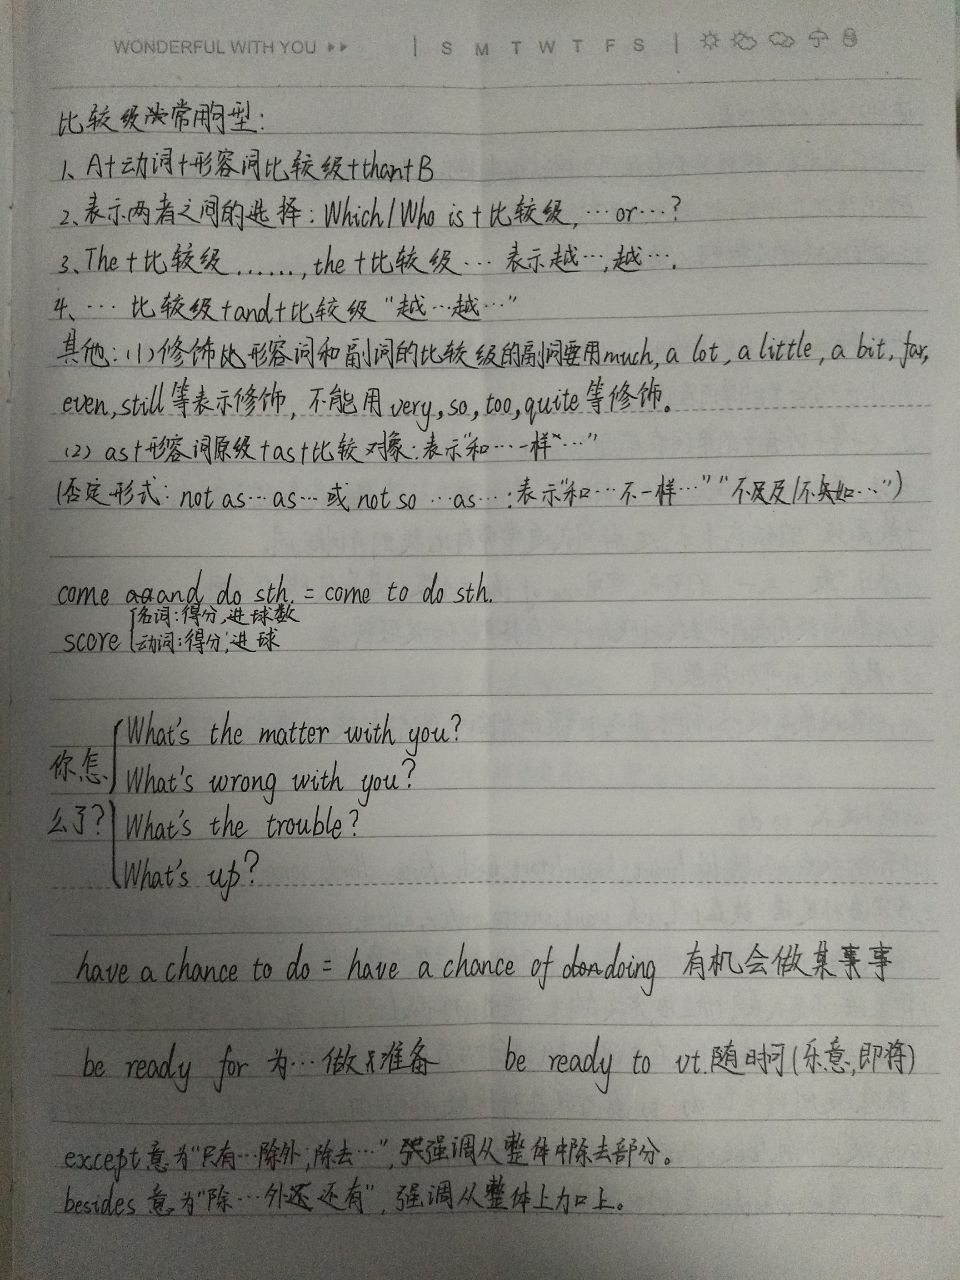 WONDERFUL WITH YOU
S M T W T F S
比较级常用句型:
1、A+动词+形容词比较级+than+B
2、表示两者之间的选择: Which/Who is +比较级, … or …?
3、The +比较级 ……, the +比较级 … 表示越…,越….
4、… 比较级+and+比较级 "越…越…"
其他: (1)修饰形容词和副词的比较级的副词要用much, a lot, a little, a bit, far,
even, still 等表示修饰, 不能用 very, so, too, quite 等修饰。
(2) as+形容词原级+as+比较对象:表示"和…一样…"
(否定形式: not as … as … 或 not so … as …:表示"和…不一样…" "不及/不如…")
come and do sth. = come to do sth.
score 名词:得分,进球数
动词:得分;进球
你怎么了?
What's the matter with you?
What's wrong with you?
What's the trouble?
What's up?
have a chance to do = have a chance of doing 有机会做某事
be ready for 为…做准备 be ready to vt. 随时可(乐意,即将)
except 意为"只有…除外,除去…", 强调从整体中除去部分。
besides 意为"除…外还有", 强调从整体上加上。